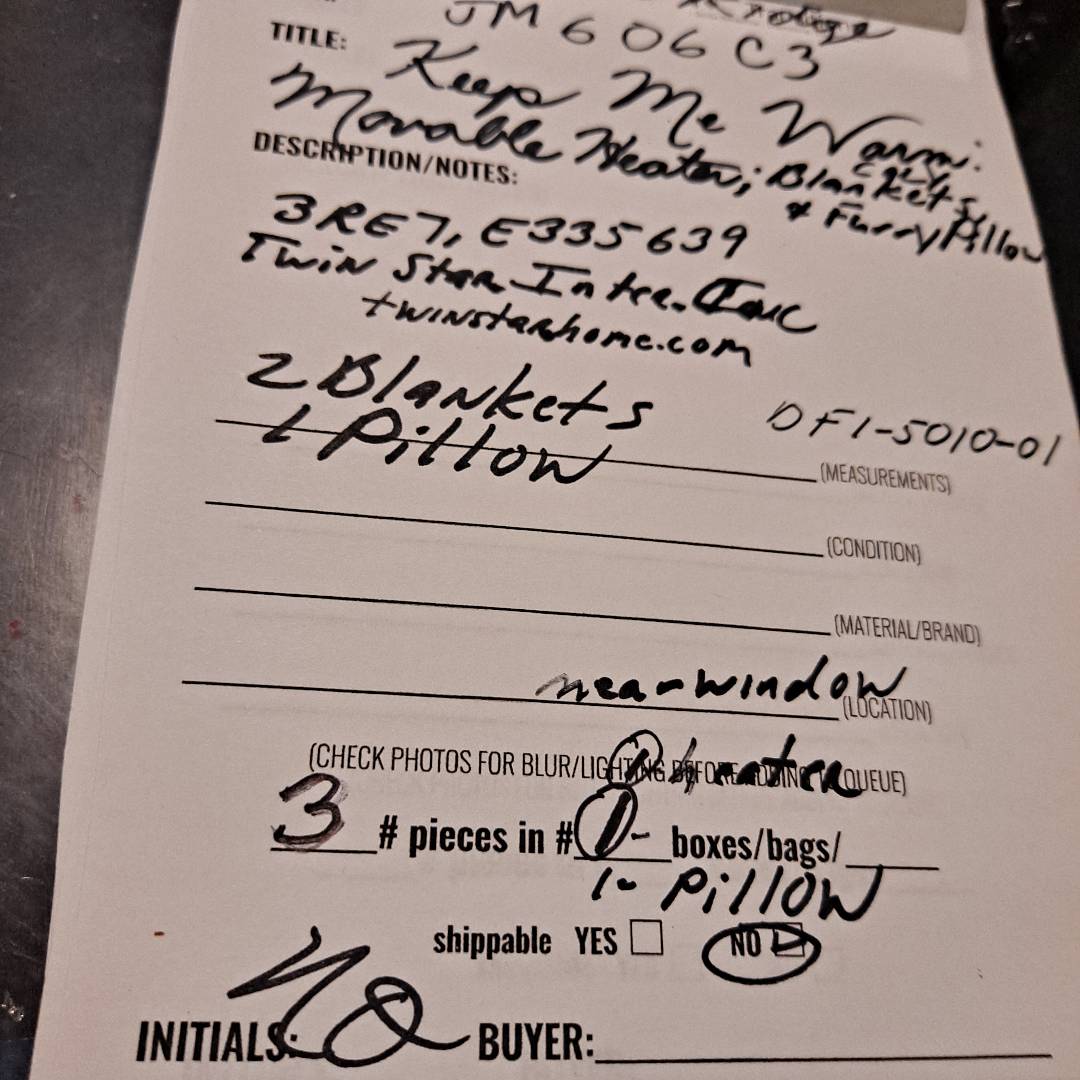 JM606C3
TITLE: Keep Me Warm:
Movable Heater; Cozy Blankets,
& Furry Pillow
DESCRIPTION/NOTES:
3RE7, E335639
Twin Star Inter. Inc
twinstarhome.com
2 Blankets
1 Pillow
DF1-5010-01
(MEASUREMENTS)
(CONDITION)
(MATERIAL/BRAND)
near window
(LOCATION)
(CHECK PHOTOS FOR BLUR/LIGHTING BEFORE ADDING TO QUEUE)
1 heater
3 # pieces in # 1- boxes/bags/
1- Pillow
shippable YES NO
INITIALS:
BUYER: